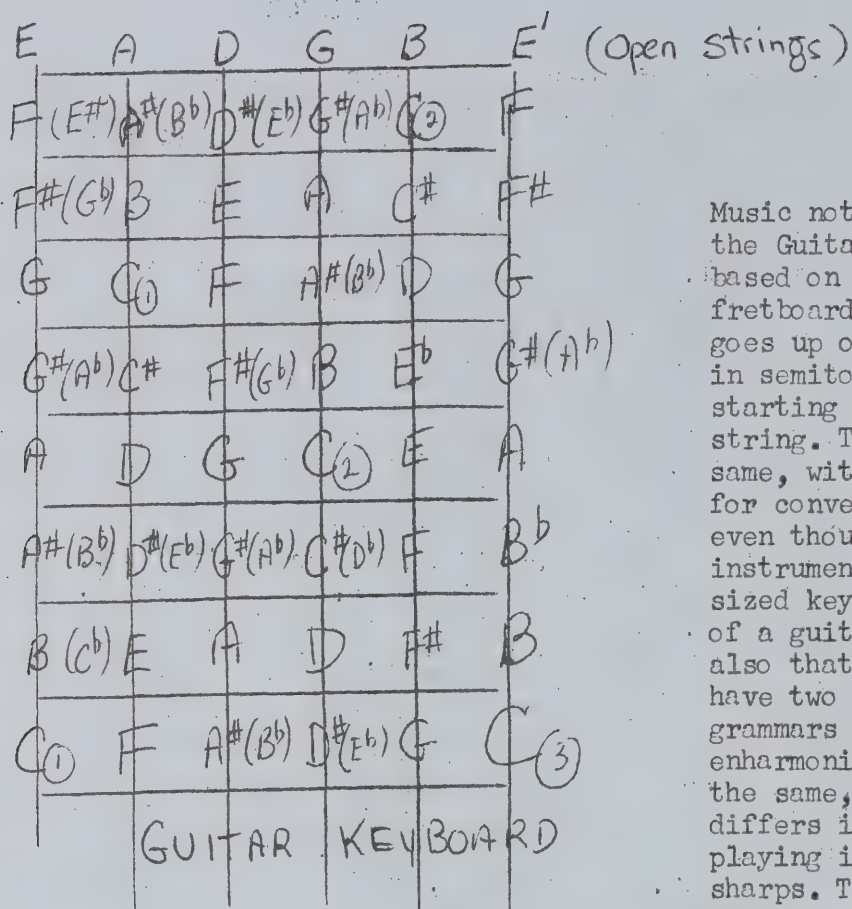 E A D G B E' (Open Strings)
F (E#) A#(Bb) D#(Eb) G#(Ab) C② F
F#(Gb) B E A C# F#
G C① F A#(Bb) D G
G#(Ab) C# F#(Gb) B Eb G#(Ab)
A D G C② E A
A#(Bb) D#(Eb) G#(Ab) C#(Db) F Bb
B (Cb) E A D F# B
C① F A#(Bb) D#(Eb) G C③
GUITAR KEYBOARD
Music not
the Guita
based on
fretboard
goes up o
in semito
starting
string. T
same, wit
for conve
even thou
instrumen
sized key
of a guit
also that
have two
grammars
enharmoni
the same,
differs i
playing i
sharps. T